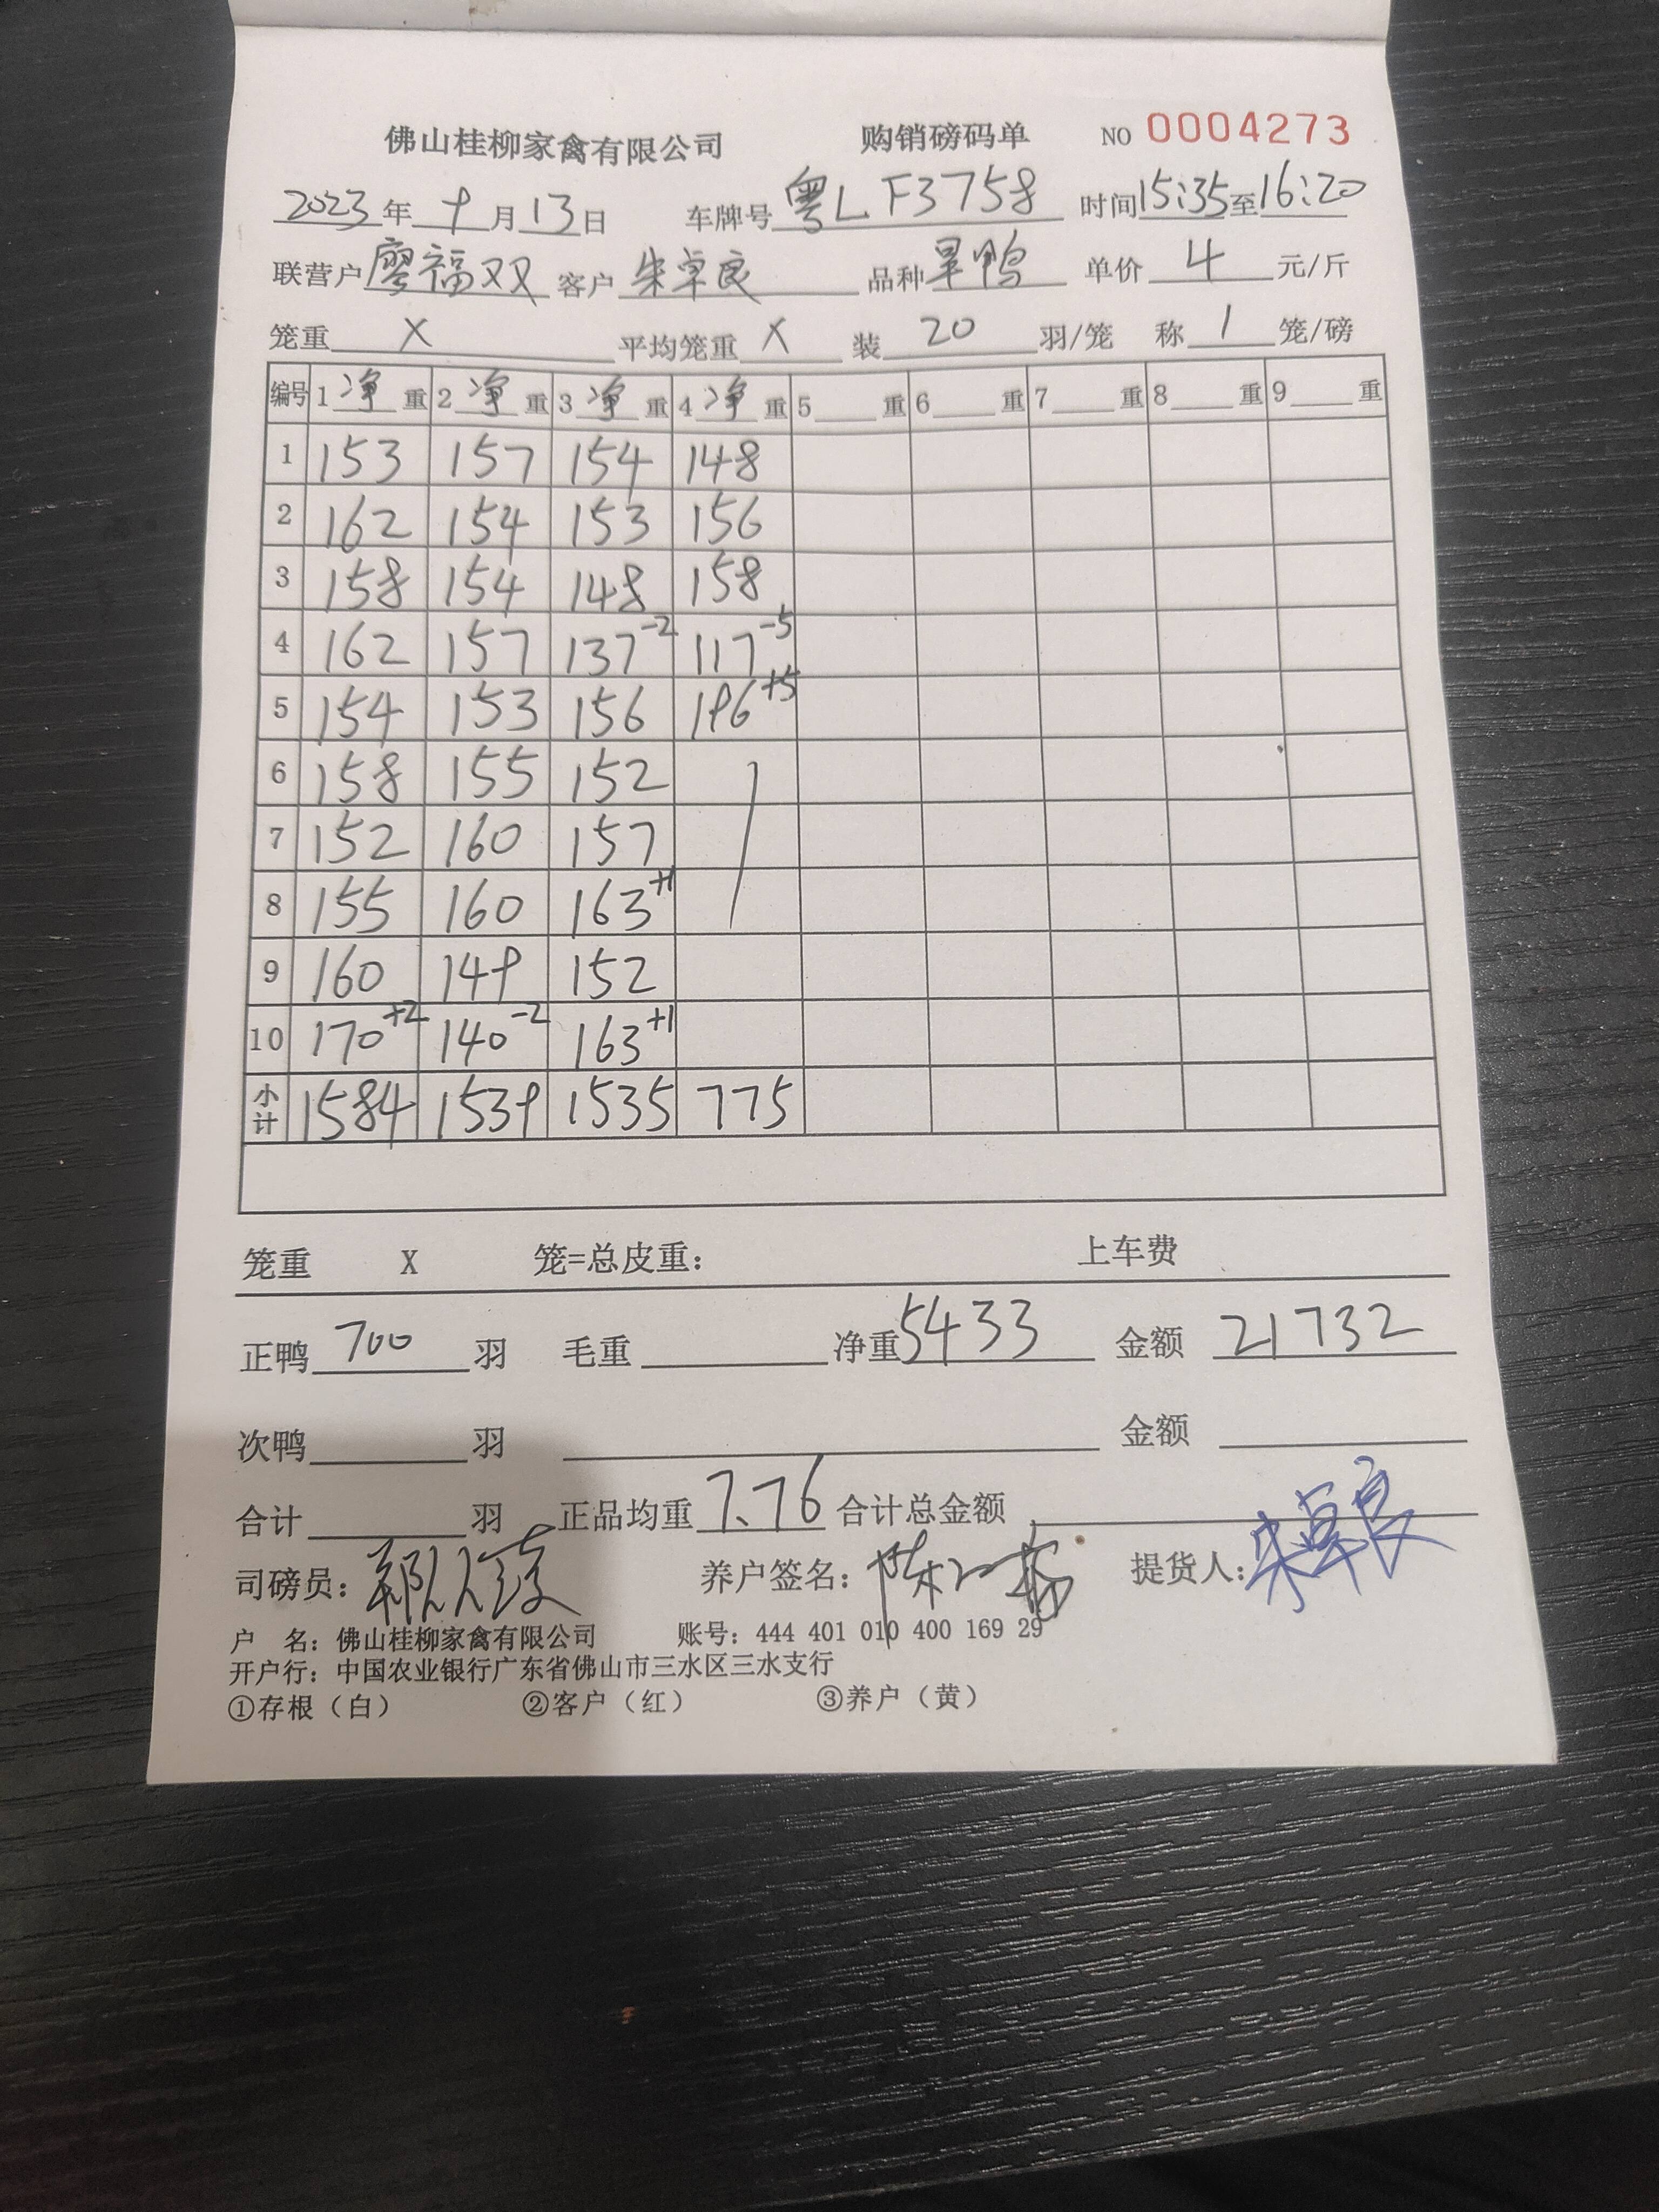 佛山桂柳家禽有限公司 购销磅码单 NO 0004273
2023年 十 月 13 日 车牌号 粤L F3758 时间 15:35 至 16:20
联营户 廖福双 客户 朱卓良 品种 旱鸭 单价 4 元/斤
笼重 X 平均笼重 X 装 20 羽/笼 称 1 笼/磅
编号 1 净 重 2 净 重 3 净 重 4 净 重 5 重 6 重 7 重 8 重 9 重
1 153 157 154 148
2 162 154 153 156
3 158 154 148 158
4 162 157 137-2 117-5
5 154 153 156 196+5
6 158 155 152
7 152 160 157
8 155 160 163+1
9 160 149 152
10 170+2 140-2 163+1
小计 1584 1539 1535 775
笼重 X 笼=总皮重: 上车费
正鸭 700 羽 毛重 净重 5433 金额 21732
次鸭 羽 金额
合计 羽 正品均重 7.76 合计总金额
司磅员: 养户签名: 提货人: 朱卓良
户 名: 佛山桂柳家禽有限公司 账号: 444 401 010 400 169 29
开户行: 中国农业银行广东省佛山市三水区三水支行
①存根（白） ②客户（红） ③养户（黄）